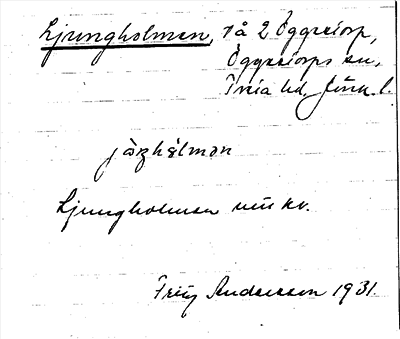 Ljungholmen, rå 2 Öggestorp,
Öggestorps sn,
Tveta hd, Jönk. l.
jȧŋhȯlmən
Ljungholmen
Fritz Andersson 1931.